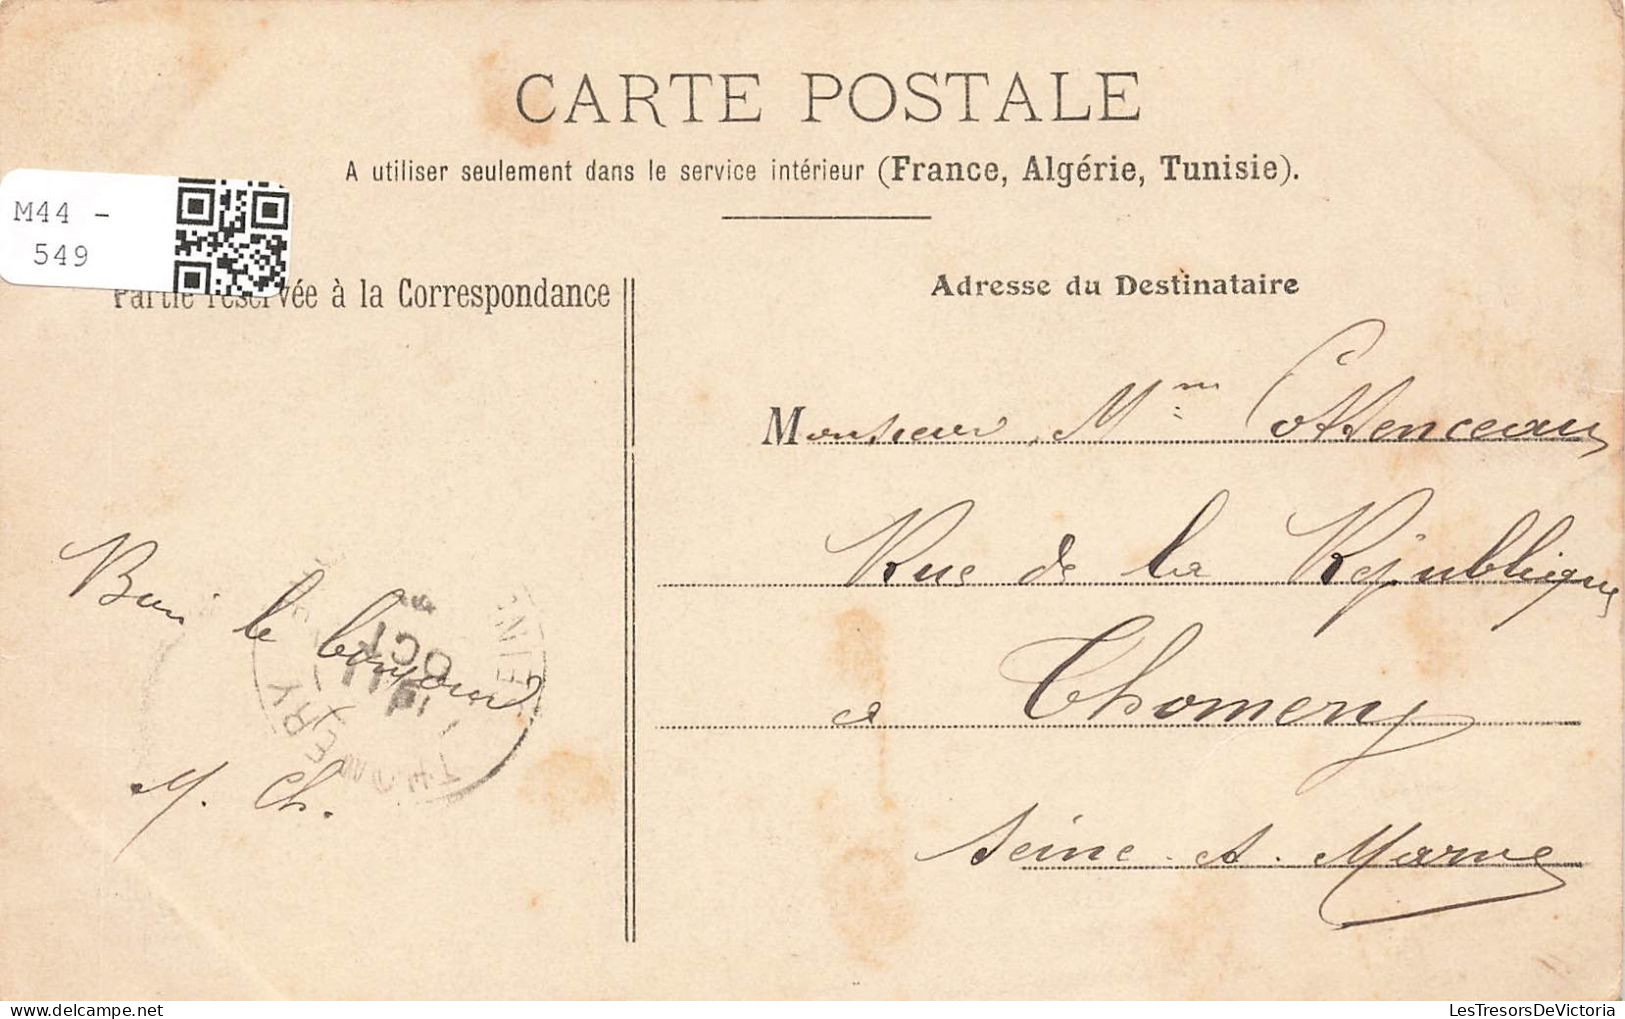 CARTE POSTALE
A utiliser seulement dans le service intérieur (France, Algérie, Tunisie).
M44 -
549
Partie réservée à la Correspondance
Adresse du Destinataire
Monsieur, Mm Cottenceau
Rue de la République
a Thomery
Seine-et-Marne
le bonjour
M. Ch.
THOMERY
OCT
LesTresorsDeVictoria